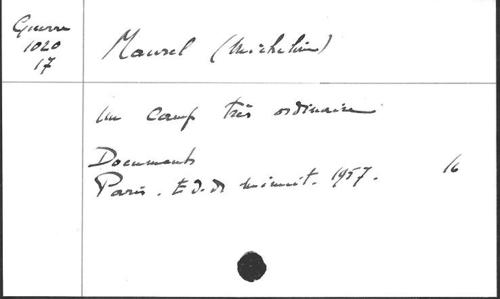 Guerre
1020
17
Maurel (Micheline)
Un camp très ordinaire
Documents
Paris. Ed. de minuit. 1957. 16